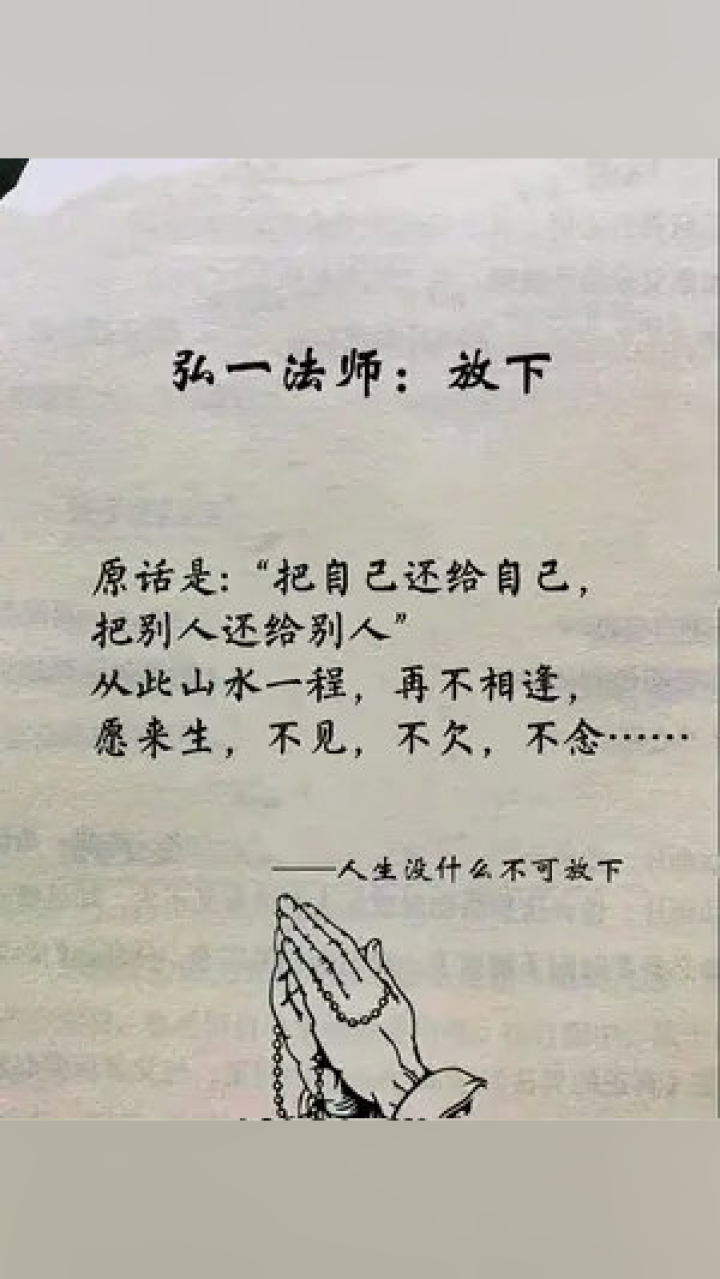 弘一法师：放下
原话是：“把自己还给自己，
把别人还给别人”
从此山水一程，再不相逢，
愿来生，不见，不欠，不念……
——人生没什么不可放下